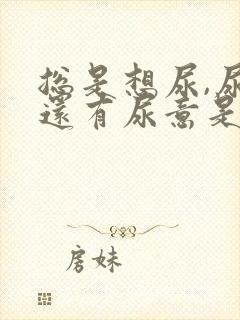 总是想尿,尿
还有尿意是
房妹